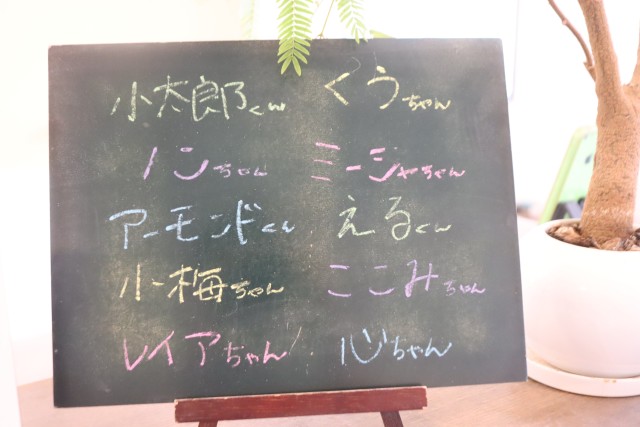 小太郎くん くぅちゃん
ノンちゃん ミーシャちゃん
アーモンドくん えるくん
小梅ちゃん ここみちゃん
レイアちゃん 心ちゃん